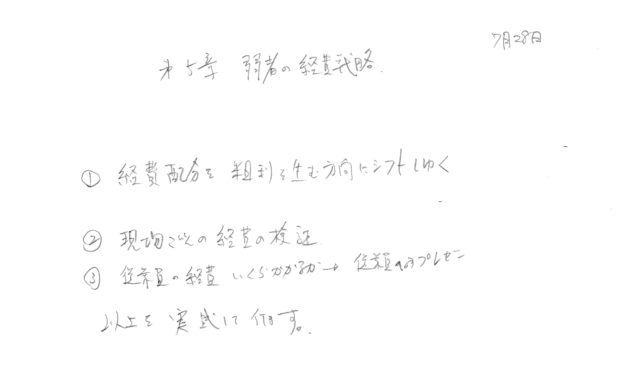 7月28日
第5章 弱者の経費戦略.
① 経費配分を粗利を生む方向にシフトしゆく
② 現場ごとの経費の検証
③ 従業員の経費 いくらかかるか→ 従業員へのプレゼン
以上を実践して行きます。